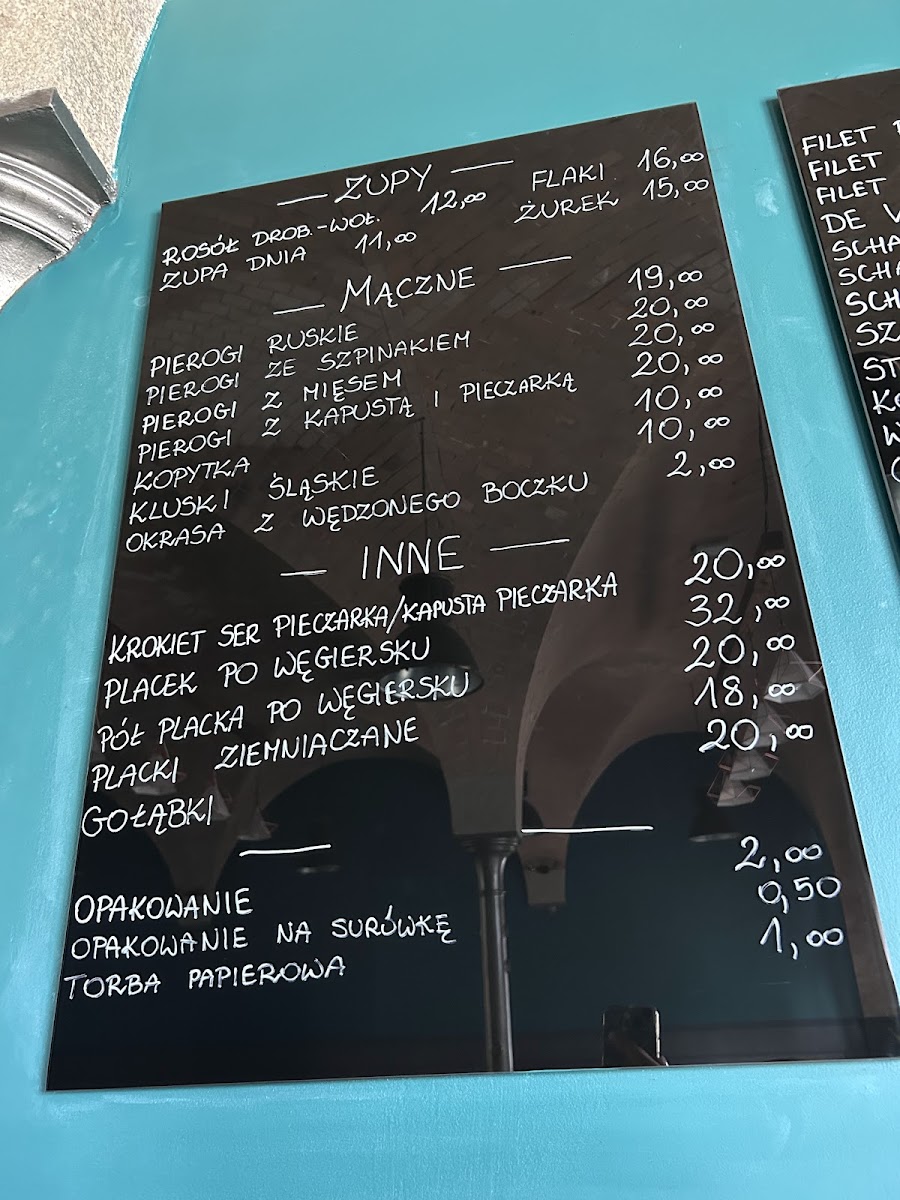 — ZUPY —
ROSÓŁ DROB.-WOŁ. 12,00 FLAKI 16,00
ZUPA DNIA 11,00 ŻUREK 15,00
— MĄCZNE —
PIEROGI RUSKIE 19,00
PIEROGI ZE SZPINAKIEM 20,00
PIEROGI Z MIĘSEM 20,00
PIEROGI Z KAPUSTĄ I PIECZARKĄ 20,00
KOPYTKA 10,00
KLUSKI ŚLĄSKIE 10,00
OKRASA Z WĘDZONEGO BOCZKU 2,00
— INNE —
KROKIET SER PIECZARKA/KAPUSTA PIECZARKA 20,00
PLACEK PO WĘGIERSKU 32,00
PÓŁ PLACKA PO WĘGIERSKU 20,00
PLACKI ZIEMNIACZANE 18,00
GOŁĄBKI 20,00
OPAKOWANIE 2,00
OPAKOWANIE NA SURÓWKĘ 0,50
TORBA PAPIEROWA 1,00
FILET
FILET
FILET
DE